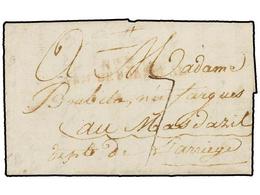 A Madame
Brabela, née fargues
au Masdazil
dept de Larriege